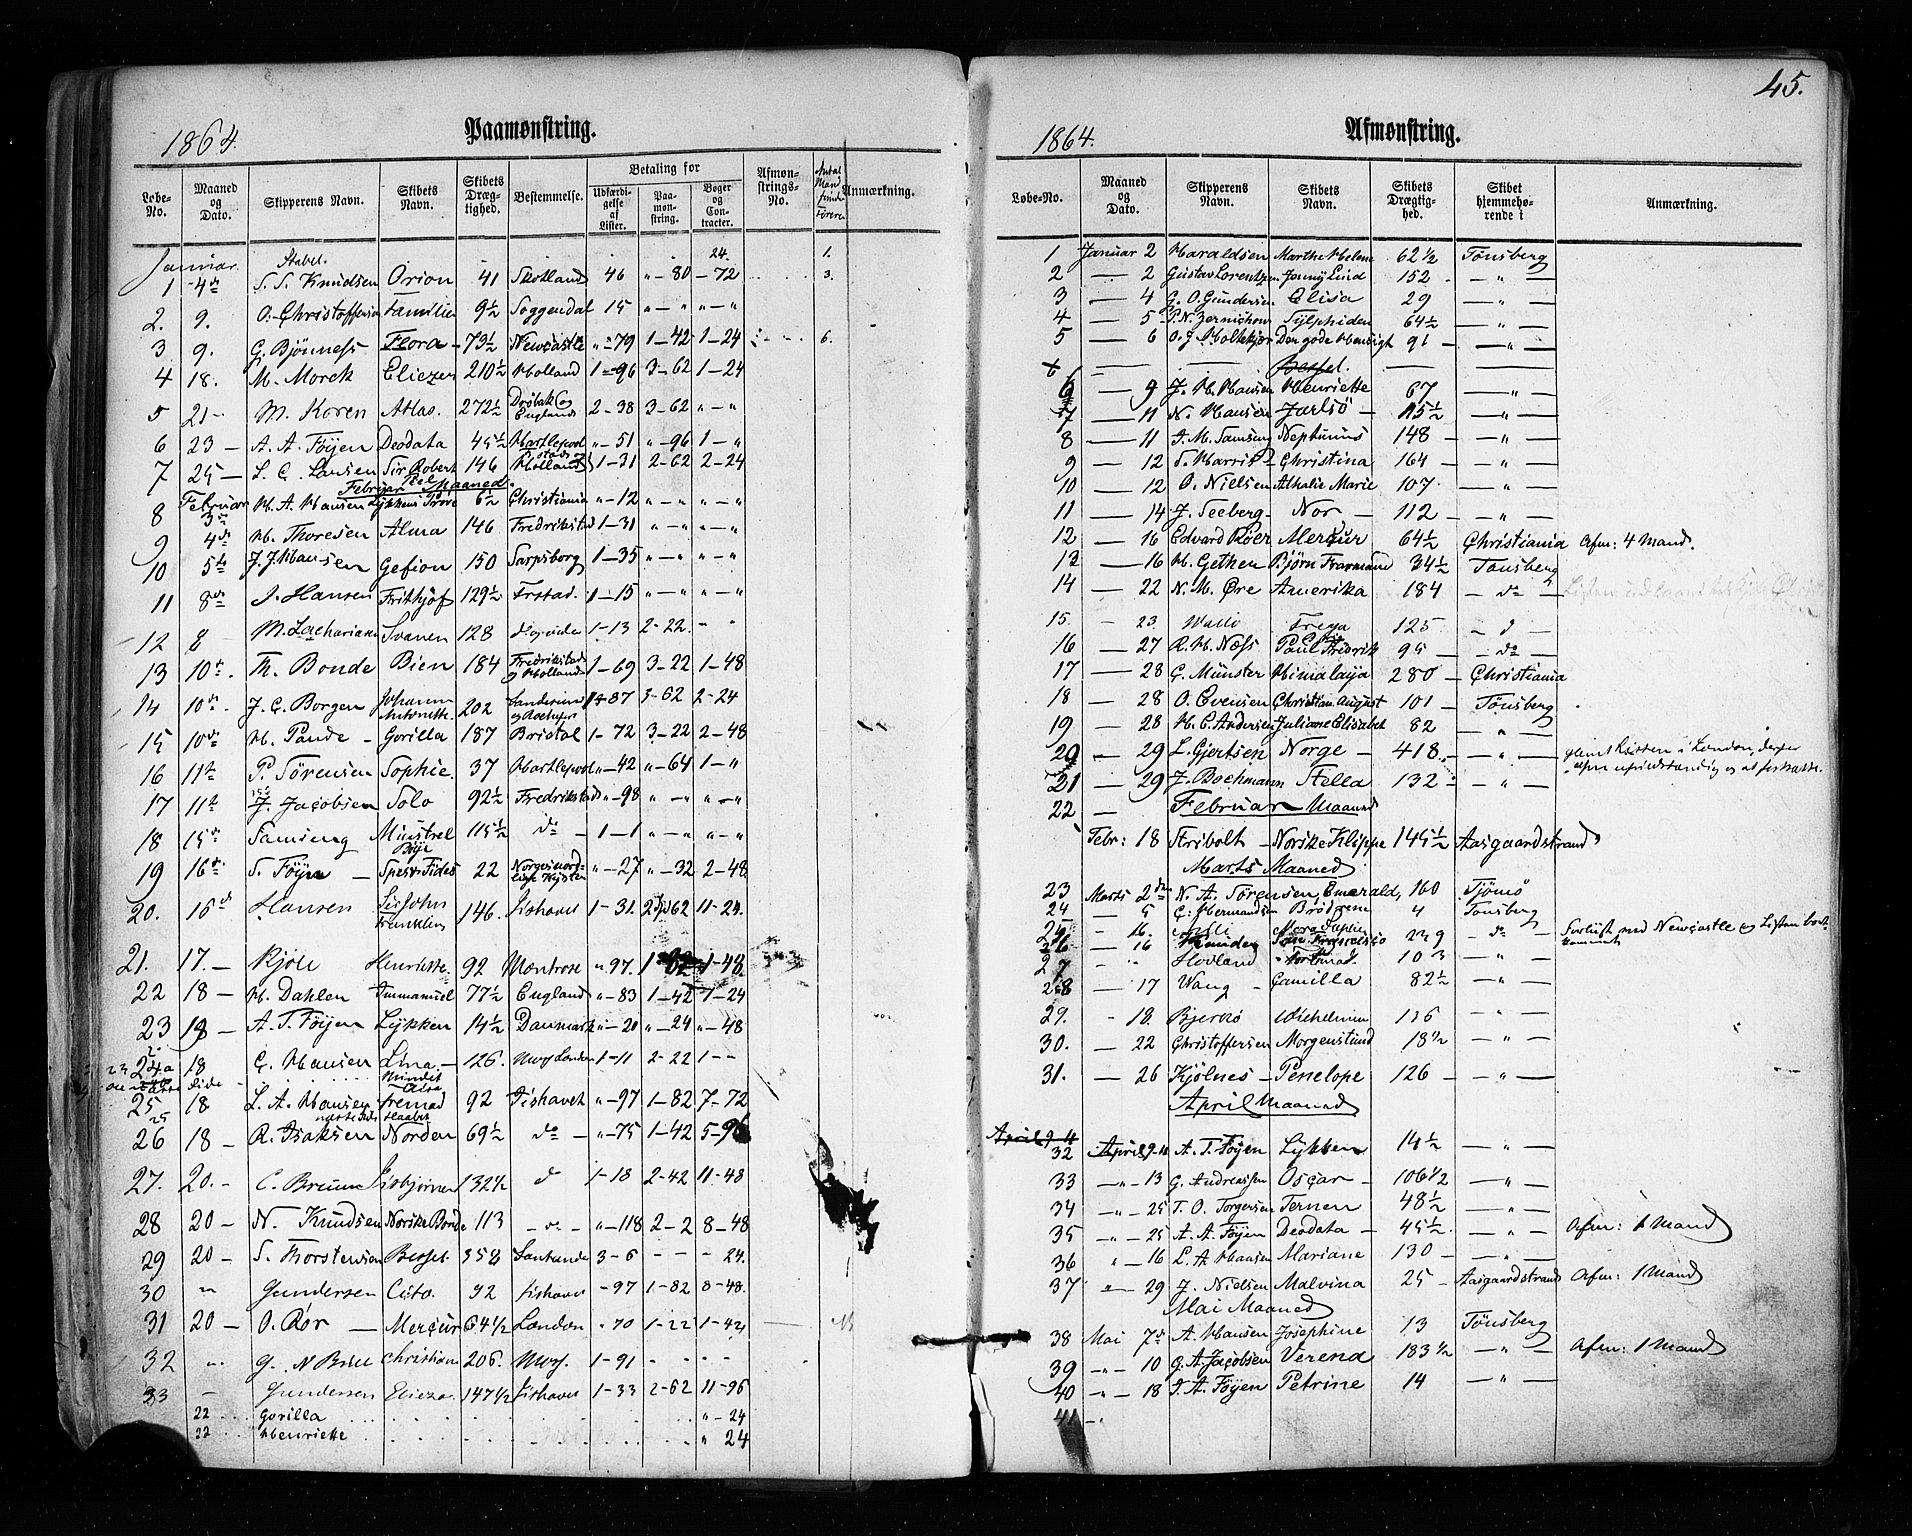 45.
1864. Paamønstring.
Løbe-No. Maaned og Dato. Skipperens Navn. Skibets Navn. Skibets Drægtighed. Bestemmelse. Betaling for Udfærdigelse af Lister. Paamønstring. Bøger og Contracter. Afmønstrings-No. Antal Mand Føreren Anmærkning.
Januar Stabel. 24. 1.
1 4de S. S. Knudsen Orion 41 Skotland 46 " - 80 - 72 3.
2. 9. O. Christoffersen Familien 9½ Soggendal 15 " - " " - "
3 9. G. Bjönness Flora 73½ Newcastle " - 79 1 - 42 1 - 24 6.
4 18. M. Morck Eliezer 210½ Holland 1 - 96 3 - 62 1 - 24
5 21 - M. Koren Atlas. 272½ Drøbak og England 2 - 38 3 - 62 " - "
6 23 - A. A. Föyen Deodata 45½ Hartlepool " - 51 " - 96 1 - "
7 25 - L. C. Larsen Sir Robert Peel 146 Holland 1 - 31 2 - 62 2 - 24
Februar Maaned.
8 Februar 3de H. A. Hansen Lykkens Pröve 6½ Christiania " - 12 " - " " - "
9 4de H. Thoresen Alma 146 Fredrikstad 1 - 31 " - " " - "
10 5te J. J. Hansen Gefion 150 Sarpsborg 1 - 35 " - " " - "
11 8de J. Hansen Frithjof 129½ Frstad. 1 - 15 " - " " - "
12 8 M. Zachariasen Svanen 128 do og videre 1 - 13 2 - 22. - "
13 10de. Th. Bonde Bien 184 Fredrikstad og Holland 1 - 69 3 - 22 1 - 48
14 10de. J. C. Borgen Johanna Antonette. 202 1 - 87 3 - 62 2 - 24
15 10de H. Pande - Gorilla 187 Bristol 1 - 72 3 - 22 2 - 48
16 11te P. Sörensen Sophie. 37 Hartlepool " - 42 " - 64 1 - "
17 11te J. Jacobsen Solo 92½ Fredrikstad " - 98 " - " " - "
18 15de Samsing Minstrel Boye 115½ do - 1 - 1 " - " " - "
19 16de S. Föyn - Spes & Fides 22 Norges nordlige Kyster " - 27 " - 32 2 - 48
20. 16d Hansen Sir John Franklin 146. Fishavet 1 - 31 2 - 62 11 - 24.
21. 17. - Kjöll Henriette. 92 Montrose " 97. 1 - 82 1 - 48
22 18 - H. Dahlen Immanuel 77½ England " - 83 1 - 42 1 - 24
23 18 - A. T. Föyen Lykken 14½ Danmark " - 20 " - 24 " - 48
24 18 C. Hansen Lina - 126. London 1 - 11 2 - 22 1 - -
25 18 L. A. Hansen Fremad 92 Fishavet " - 97 1 - 82 7 - 72
26 18 - R. Isaksen Norden 69½ do - " - 75 1 - 42 5 - 96
27. 20. - C. Bruun Isbjörnen 132½ d 1 - 18 2 - 42 11 - 48
28 20 - N. Knudsen Norske Bonde 113 - do - " - 118 2 - 2 8 - 48
29 20 - S. Thorstensen Bessel. 358 3 - 6 - - - 24.
30 " Gundersen Cito. 92 Fishavet - 97 1 - 82 8 - 48.
31 20 - O. Rör - Mercur 64½ London " 70 1 - 22 1 - 42
32 " G. N. Bull Christiane 206. 1 - 91 - - - -
33 - Gundersen Elieza. 147½ Fishavet 1 - 33 2 - 62 11 - 96
22 Gorilla " - 24
22 Henriette " 24
1864. Afmønstring.
Løbe-No. Maaned og Dato. Skipperens Navn. Skibets Navn. Skibets Drægtighed. Skibet hjemmehørende i Anmærkning.
1 Januar 2 Haraldsen Marthe Helene 62½ Tönsberg
2 - 2 Gustav Lorentzen Jenny Lind 152 - " -
3 - 4 G. O. Gundersen Elisa 29 - " -
4 - 5 P. N. Zernichow Sylphiden 64½ - " -
5 - 6 O. J. Holtekjær Den gode Hensigt 91 - " -
Bessel.
6 - 9 J. H. Hansen Henriette 67 - " -
7 - 11 N. Hansen Jarlsö - 115½ - " -
8 - 11 J. M. Samsing Neptunus 148 - " -
9 - 12 S. Harris - Christina 164 - - " -
10 - 12 O. Nielsen Athalie Marie 107 - " -
11 - 14 J. Seeberg - Nor - 112 - " -
12 - 16 Edvard Röer Mercur 64½ Christiania Afm: 4 Mand.
13 - 16 H. Gethen Björn Farmand 34½ Tönsberg
14 - 22 N. M. Øre Amerika 184 - do -
15. - 23. Wallö Freya 125 - d -
16 - 27 R. H. Næss Paul Fredrik 95 - - do -
17 - 28 C. Münster Himalaya 280 - Christiania
18 - 28 O. Evensen Christian August 101 - Tönsberg
19 - 28 H. C. Andersen Juliane Elisabet 82 - " -
20 - 29 L. Gjertsen Norge - 418 - - " - glemt Listen i London, derfor
21 - 29 J. Bochmann Stella 132 - - " -
22 - Februar Maaned
Febr: 18 Stribolt - Norske Klippe 145½ Aasgaardstrand
Marts Maaned
23 Marts 2de N. A. Sörensen, Emerald, 160 Tjömö
24 - 5 C. Hermandsen Brödrene 4 Tönsberg
25 - 16. - do - Forliist ned Newcastle og Listen bortkommet
26 - 16 239 - " -
27 " Hovland Fortunad. 103 - " -
28 - 17 Wang - Camilla 82½ - " -
29. - 18. Bjerkö Wilhelmine 136 - " -
30. - 22 Christoffersen Morgenstund 18½ - " -
31. - 26 Kjölnes - Penelope 126 - - " -
April Maaned
April 9-11
32 April 9-11 A. T. Föyen Lykken 14½ - " -
33 - " - 13 G. Andreassen Oscar - 106½ - " -
34 - " - 25 T. O. Torgersen Ternen 48½ - " -
35 " - 25 A. A. Föyen Deodata - 45½ - " - Afm: 1 Mand
36 " - 16 L. A. Hansen Mariane 130 - - " -
37 " - 29 J. Nielsen Malvina 25 - Aasgaardstrand Afm: 1 Mand
Mai Maaned
38 Mai 7de A. Hansen Josephine 13 Tönsberg
39 " - 10 G. A. Jacobsen Verena 183½ - " - Afm: 1 Mand
40 " - 18 J. A. Föyen Petrine 14 - " -
41 - "